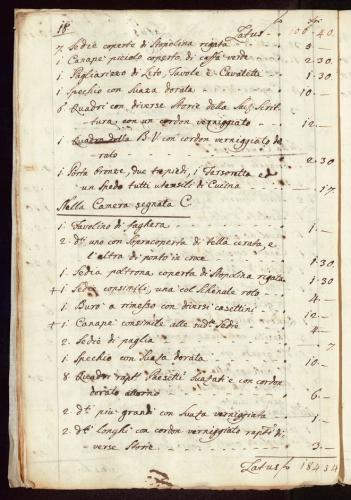 18. Latus - fo 106 - 40
7. Sedie coperte di Stopolina rigata - 3 -
1 Canapè picciolo coperto di caffà verde - 2 - 30
1 Pagliarizzo di Leto, Tavole e Cavaletti - 1 - 30
1 Spechio con Suaza dorata - 10 -
6 Quadri con diverse Storie della Sac: Scrit-
tura con un cordon vernigiato - 12 -
1 Quadro della B.V. con cordon vernigiato do-
rato - 2 - 30
1 Porta bronze, due trepiedi, 1 ed
un Spedo tutti utensili di Cucina - 17
Nella Camera segnata C.
1 Tavolino di faghera - 1 -
2 dti uno con Sopracoperta di tella cerata, e
l'altra di ponto in croce - 1 - 30
1 Sedia poltrona coperta di Stopolina rigata - 1 - 30
1 Sedie consimili, una col Schenale roto - 4 -
1 Burò a rimesso con diversi casettini - 12 -
1 Canapè consimile alle sudte Sedie - 4 -
2 Sedie di paglia - 7
1 Spechio con Suaza dorata - 10 -
8 Quadri rapti Paesetti Suazati e con cordon
dorato attorno - 6 -
2 dti più grandi con Suaza vernigiata - 1 -
2 dti longhi con cordon vernigiato rapti di-
verse Storie - 3 -
Latus fo 184 34